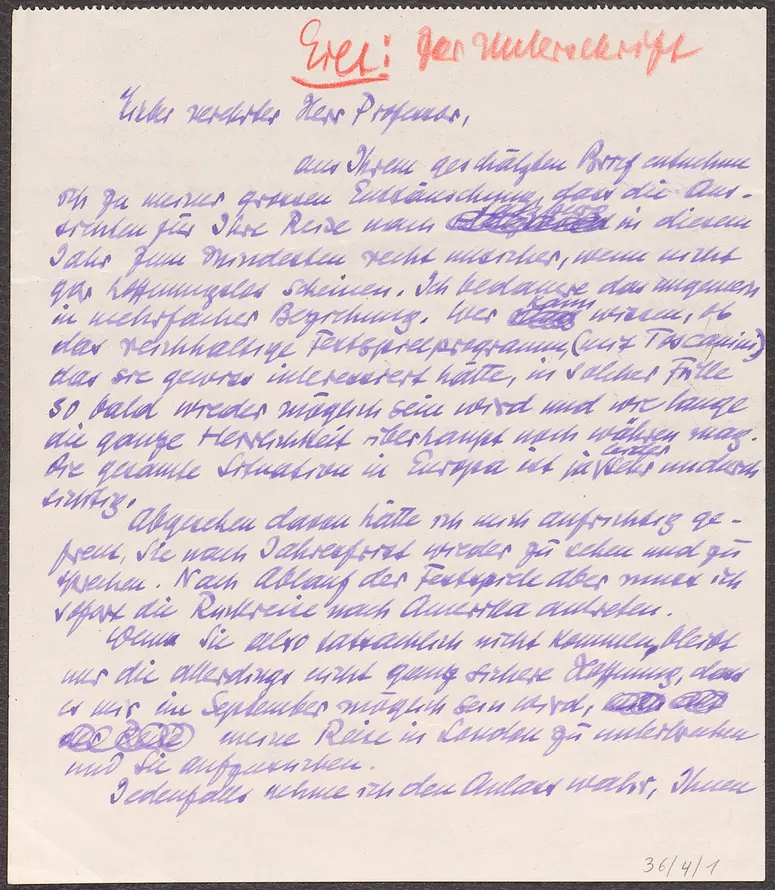 Eilt: zur Unterschrift
Lieber verehrter Herr Professor,
aus Ihrem geschätzten Brief entnehme
ich zu meiner grossen Enttäuschung, dass die Aus-
sichten für Ihre Reise nach in diesem
Jahr zum Mindesten recht unsicher, wenn nicht
gar hoffnungslos scheinen. Ich bedauere das ungemein
in mehrfacher Beziehung. Wer kann wissen, ob
das reichhaltige Festspielprogramm, (mit Toscanini)
das sie gewiss interessiert hätte, in solcher Fülle
so bald wieder möglich sein wird und wie lange
die ganze Herrlichkeit überhaupt noch währen mag.
Die gesamte Situation in Europa ist ja leider sehr undurch
sichtig.
Abgesehen davon hätte ich mich aufrichtig ge-
freut, Sie nach Jahresfrist wieder zu sehen und zu
sprechen. Nach Ablauf der Festspiele aber muss ich
sofort die Rückreise nach Amerika antreten.
Wenn Sie also tatsächlich nicht kommen, bleibt
nur die allerdings nicht ganz sichere Hoffnung, dass
es mir im September möglich sein wird,
meine Reise in London zu unterbrechen
und Sie aufzusuchen.
Jedenfalls nehme ich den Anlass wahr, Ihnen
36/4/1